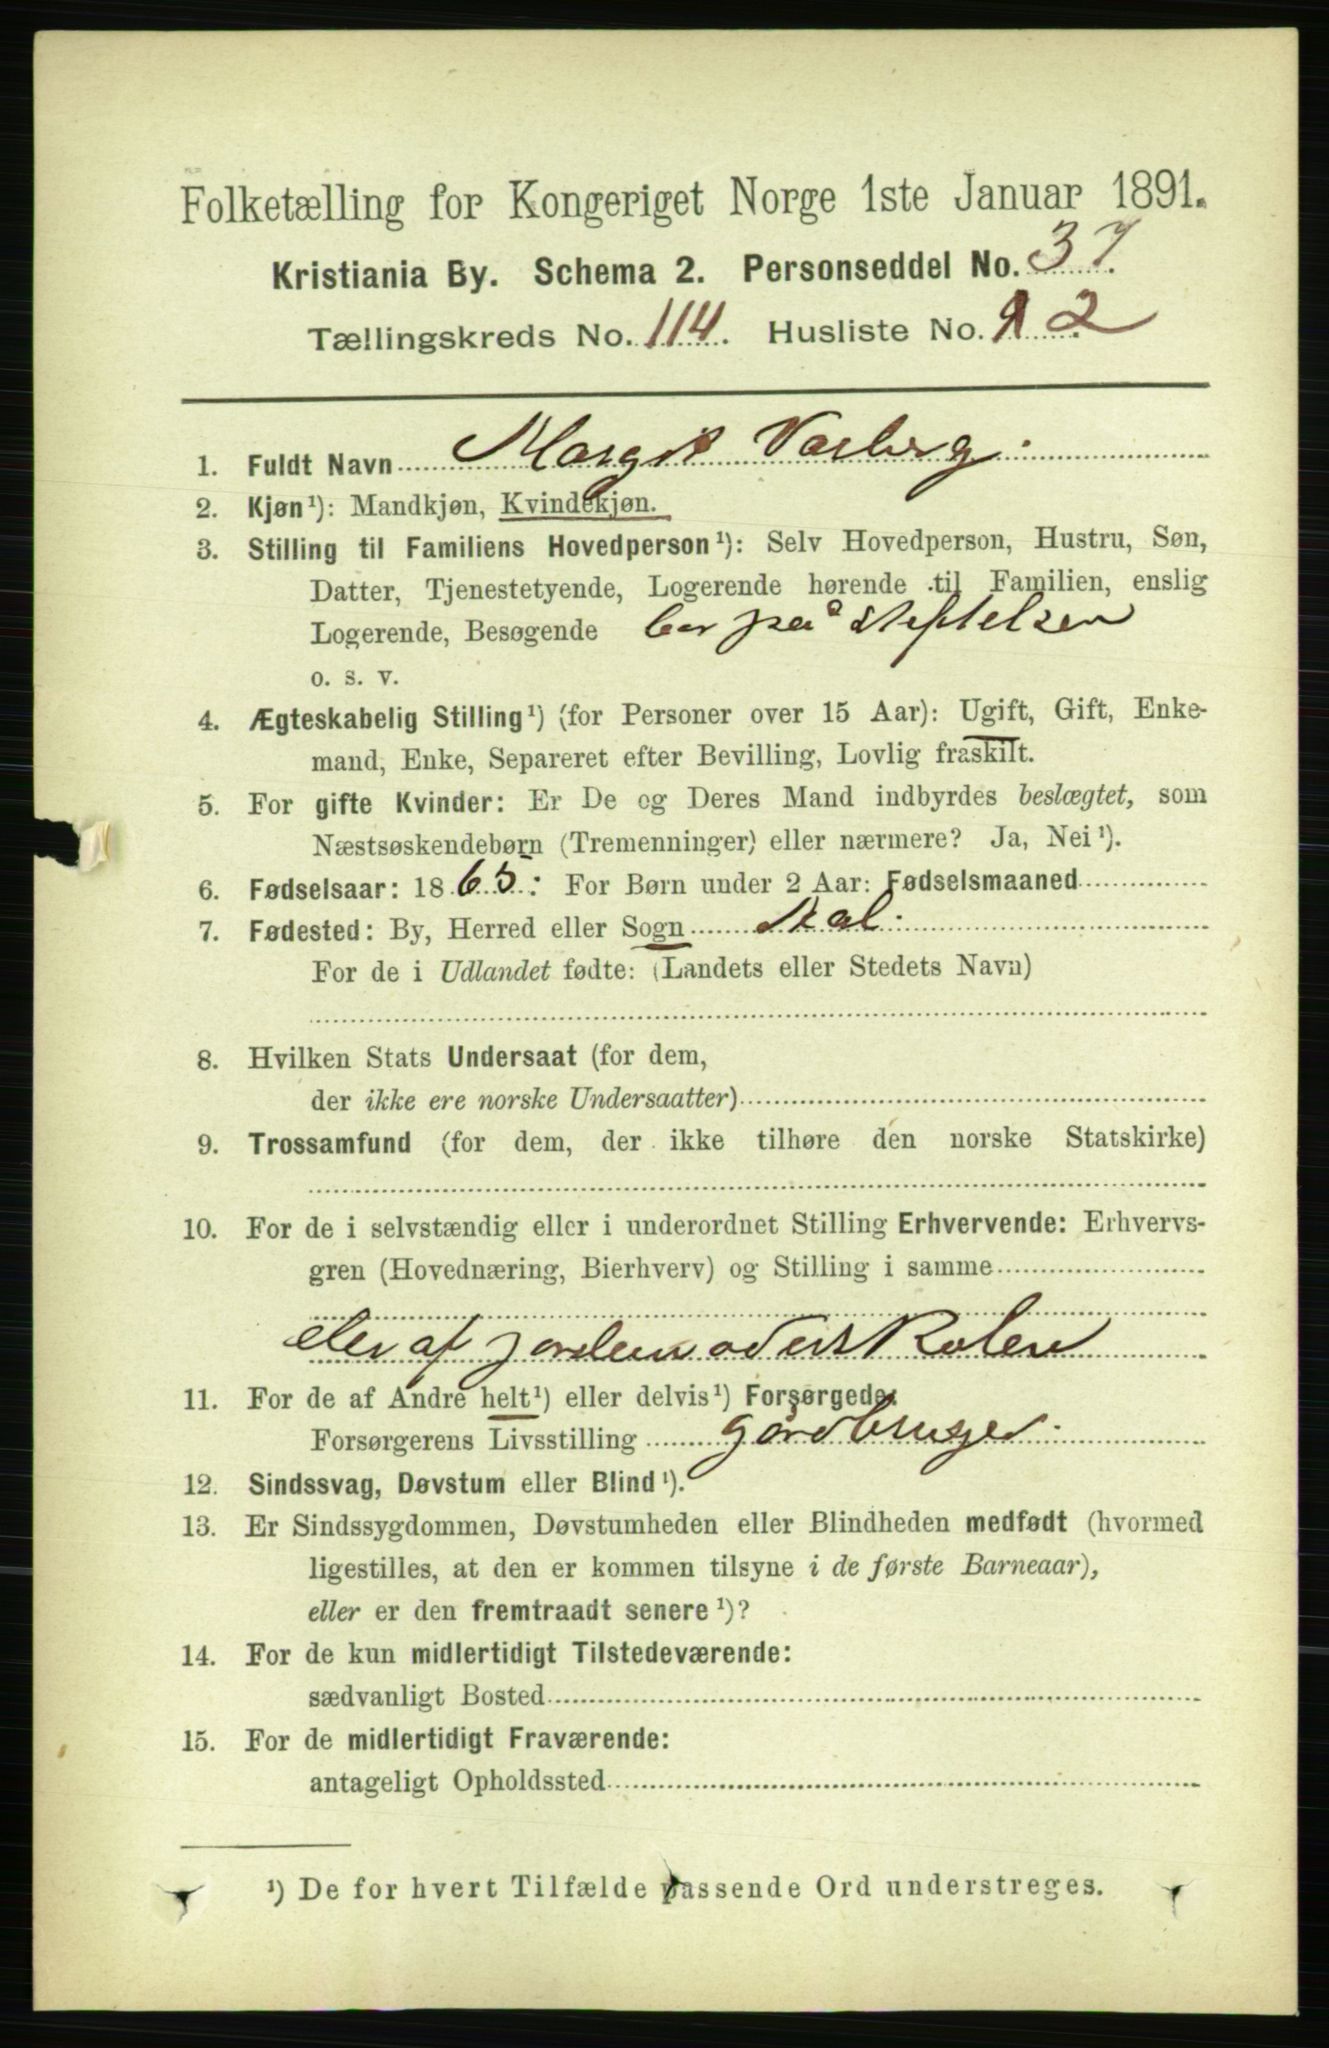 Folketælling for Kongeriget Norge 1ste Januar 1891.
Kristiania By. Schema 2. Personseddel No. 37.
Tællingskreds No. 114. Husliste No. 2
1. Fuldt Navn Margit Varberg.
2. Kjøn ¹): Mandkjøn, Kvindekjøn.
3. Stilling til Familiens Hovedperson ¹): Selv Hovedperson, Hustru, Søn,
Datter, Tjenestetyende, Logerende hørende til Familien, enslig
Logerende, Besøgende bor på stiftelsen
o. s. v.
4. Ægteskabelig Stilling ¹) (for Personer over 15 Aar): Ugift, Gift, Enke-
mand, Enke, Separeret efter Bevilling, Lovlig fraskilt.
5. For gifte Kvinder: Er De og Deres Mand indbyrdes beslægtet, som
Næstsøskendebørn (Tremenninger) eller nærmere? Ja, Nei ¹).
6. Fødselsaar: 1865: For Børn under 2 Aar: Fødselsmaaned
7. Fødested: By, Herred eller Sogn Aal.
For de i Udlandet fødte: (Landets eller Stedets Navn)
8. Hvilken Stats Undersaat (for dem,
der ikke ere norske Undersaatter)
9. Trossamfund (for dem, der ikke tilhøre den norske Statskirke)
10. For de i selvstændig eller i underordnet Stilling Erhvervende: Erhvervs-
gren (Hovednæring, Bierhverv) og Stilling i samme
elev af jordemoderskolen
11. For de af Andre helt ¹) eller delvis ¹) Forsørgede:
Forsørgerens Livsstilling gårdbruger.
12. Sindssvag, Døvstum eller Blind ¹).
13. Er Sindssygdommen, Døvstumheden eller Blindheden medfødt (hvormed
ligestilles, at den er kommen tilsyne i de første Barneaar),
eller er den fremtraadt senere ¹)?
14. For de kun midlertidigt Tilstedeværende:
sædvanligt Bosted
15. For de midlertidigt Fraværende:
antageligt Opholdssted
¹) De for hvert Tilfælde passende Ord understreges.